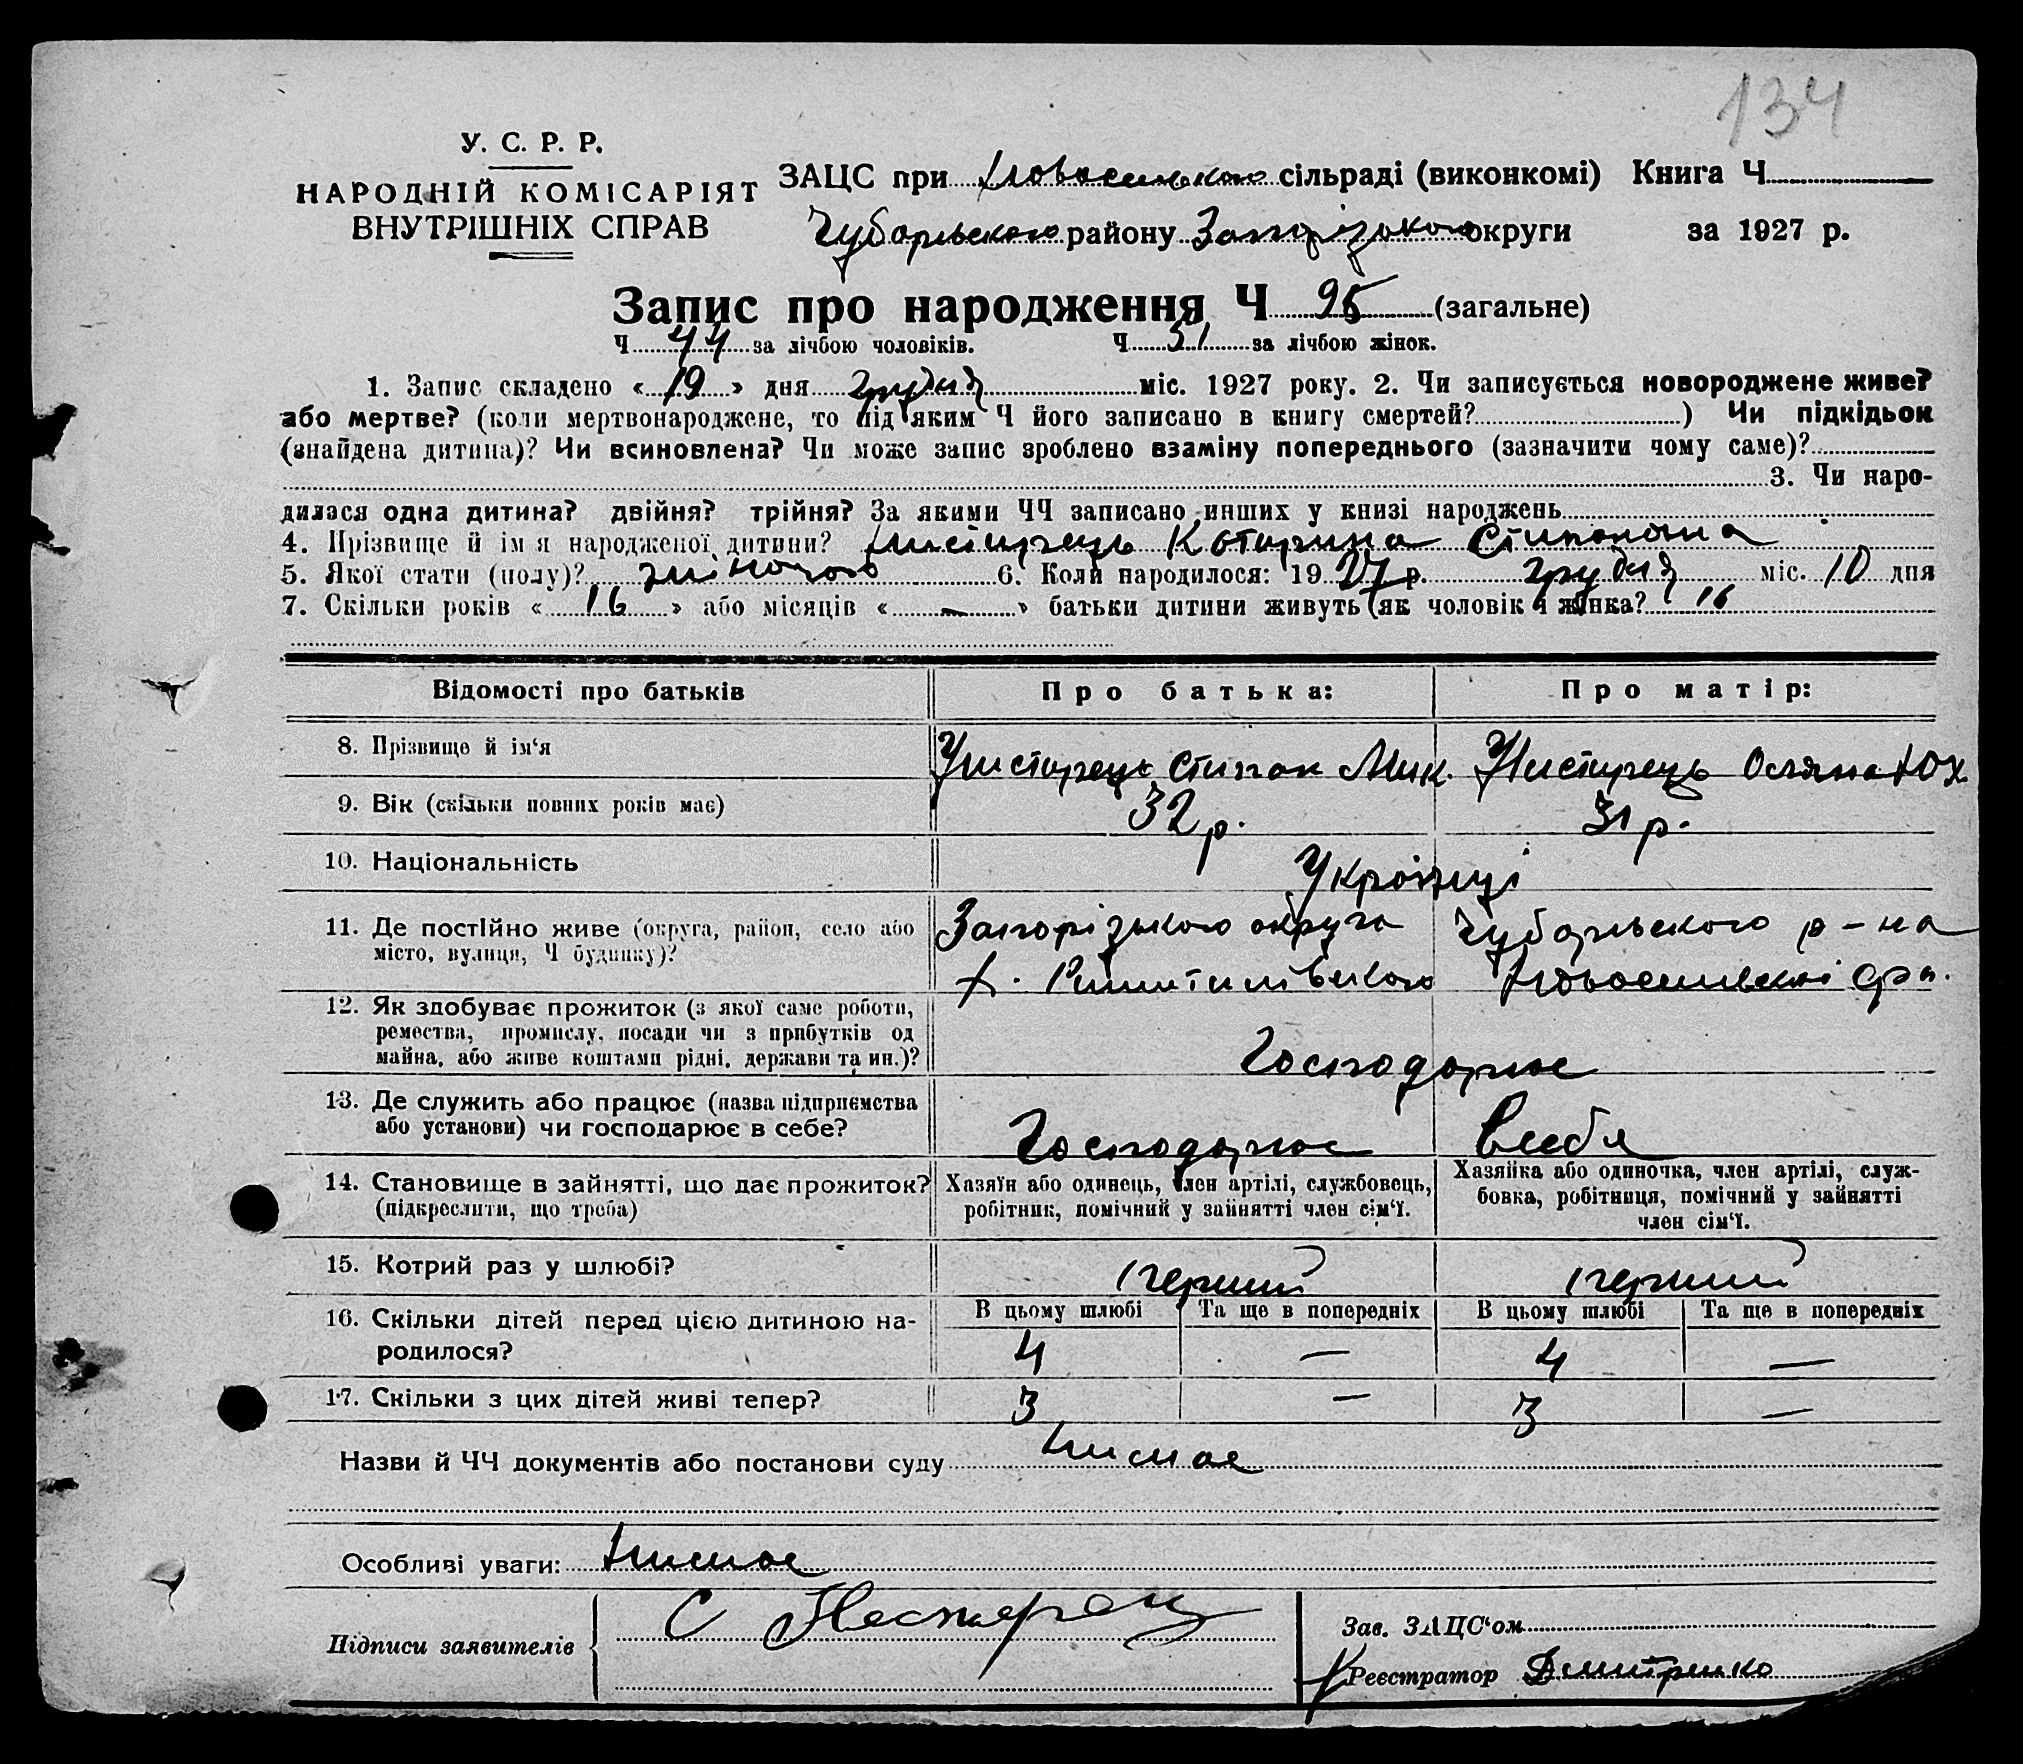 134
У. С. Р. Р.
НАРОДНІЙ КОМІСАРІЯТ
ВНУТРІШНІХ СПРАВ
ЗАЦС при сільраді (виконкомі) Книга Ч
Чубарьського району Запорізького округи за 1927 р.
Запис про народження Ч 95 (загальне)
Ч 44 за лічбою чоловіків. Ч 51 за лічбою жінок.
1. Запис складено « 19 » дня грудня міс. 1927 року. 2. Чи записується новороджене живе?
або мертве? (коли мертвонароджене, то під яким Ч його записано в книгу смертей? ) Чи підкідьок
(знайдена дитина)? Чи всиновлена? Чи може запис зроблено взаміну попереднього (зазначити чому саме)?
3. Чи наро-
дилася одна дитина? двійня? трійня? За якими ЧЧ записано инших у книзі народжень
4. Прізвище й ім я народженої дитини? Нистирець Катирина
5. Якої стати (полу)? жіночого 6. Коли народилося: 19 27 р. грудня міс. 10 дня
7. Скільки років « 16 » або місяців « — » батьки дитини живуть як чоловік і жінка? 16
Відомості про батьків Про батька: Про матір:
8. Прізвище й ім‘я Нистирець Стипан Мик. Нистирець Юх.
9. Вік (скільки повних років має) 32 р. 31 р.
10. Національність Українці
11. Де постійно живе (округа, район, село або Запорізького округа Чубарьського р-на
місто, вулиця, Ч будинку)?
12. Як здобуває прожиток (з якої саме роботи,
ремества, промислу, посади чи з прибутків од
майна, або живе коштами рідні, держави та ин.)? Господарює
13. Де служить або працює (назва підприємства
або установи) чи господарює в себе? Господарює в себя
14. Становище в зайнятті, що дає прожиток? Хазяїн або одинець, член артілі, службовець, Хазяйка або одиночка, член артілі, служ-
(підкреслити, що треба) робітник, помічний у зайнятті член сім‘ї. бовка, робітниця, помічний у зайнятті
член сім‘ї.
15. Котрий раз у шлюбі? перший перший
16. Скільки дітей перед цією дитиною на- В цьому шлюбі Та ще в попередніх В цьому шлюбі Та ще в попередніх
родилося? 4 — 4 —
17. Скільки з цих дітей живі тепер? 3 — 3 —
Назви й ЧЧ документів або постанови суду Нимає
Особливі уваги: Нимає
Підписи заявителів С Нестерец
Зав. ЗАЦС‘ом
Реєстратор Дмитренко